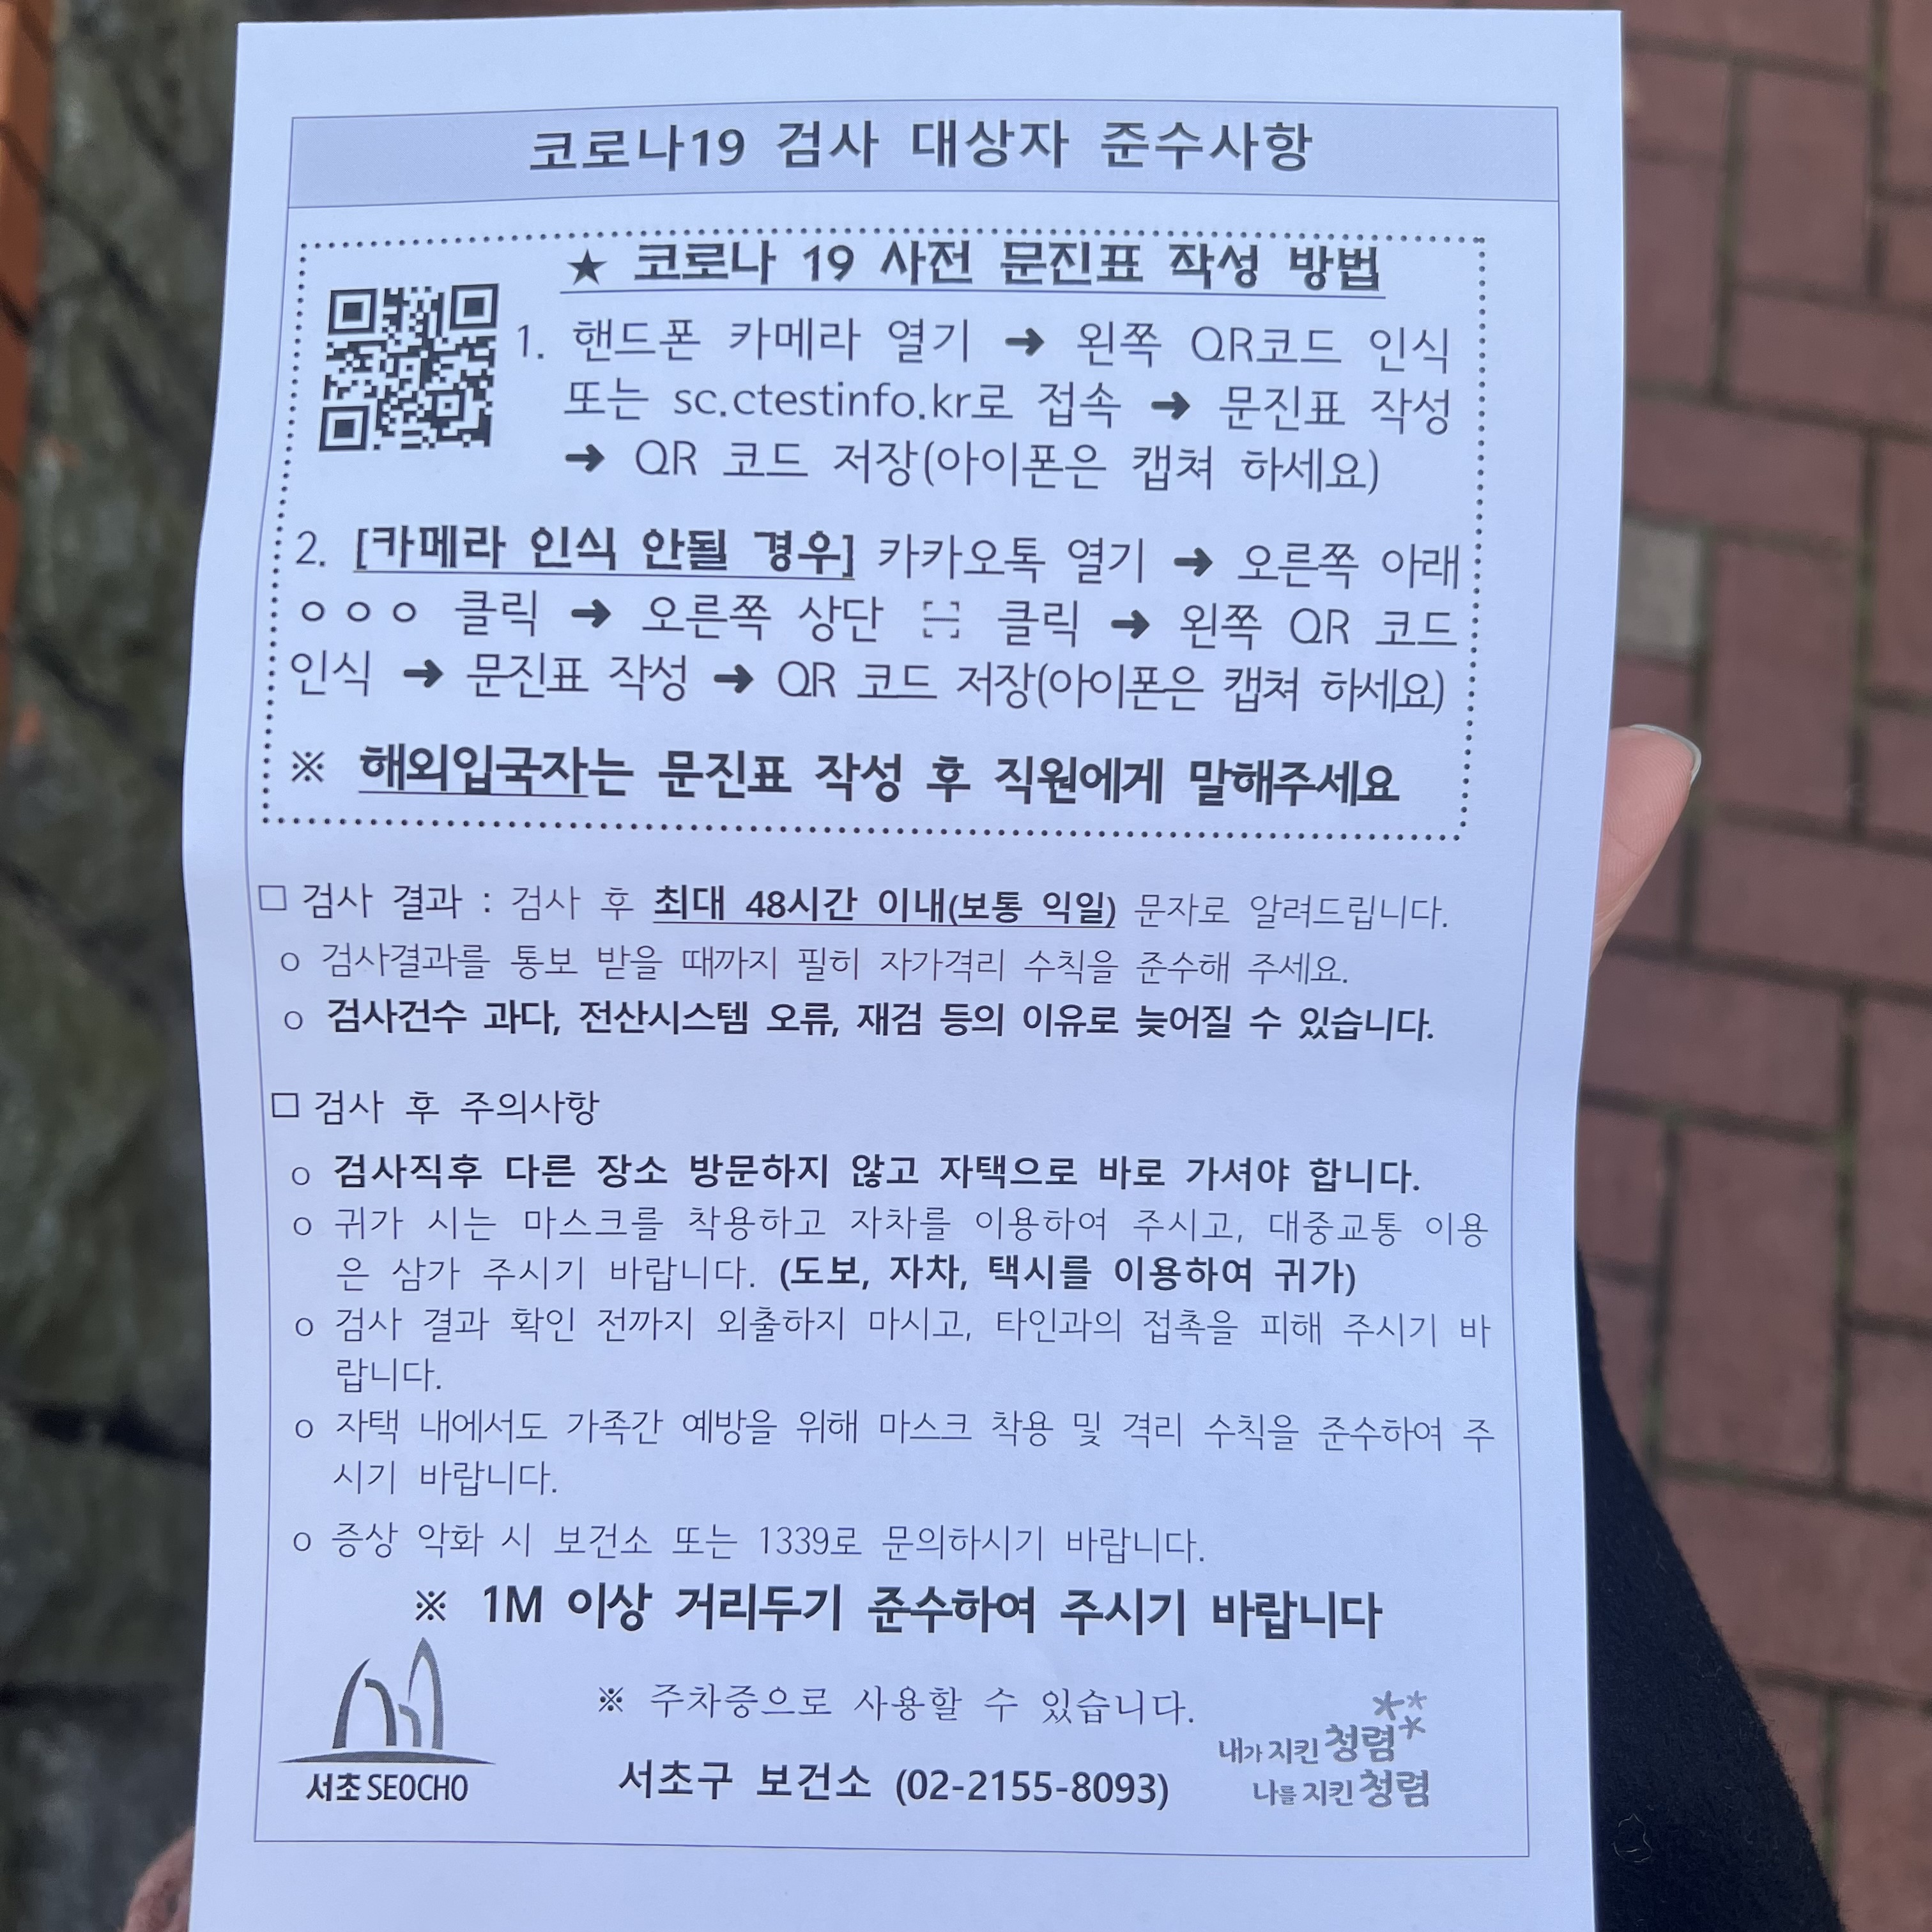 코로나19 검사 대상자 준수사항
★ 코로나 19 사전 문진표 작성 방법
1. 핸드폰 카메라 열기 ➜ 왼쪽 QR코드 인식
또는 sc.ctestinfo.kr로 접속 ➜ 문진표 작성
➜ QR 코드 저장(아이폰은 캡쳐 하세요)
2. [카메라 인식 안될 경우] 카카오톡 열기 ➜ 오른쪽 아래
ㅇㅇㅇ 클릭 ➜ 오른쪽 상단 클릭 ➜ 왼쪽 QR 코드
인식 ➜ 문진표 작성 ➜ QR 코드 저장(아이폰은 캡쳐 하세요)
※ 해외입국자는 문진표 작성 후 직원에게 말해주세요
□ 검사 결과 : 검사 후 최대 48시간 이내(보통 익일) 문자로 알려드립니다.
ㅇ 검사결과를 통보 받을 때까지 필히 자가격리 수칙을 준수해 주세요.
ㅇ 검사건수 과다, 전산시스템 오류, 재검 등의 이유로 늦어질 수 있습니다.
□ 검사 후 주의사항
ㅇ 검사직후 다른 장소 방문하지 않고 자택으로 바로 가셔야 합니다.
ㅇ 귀가 시는 마스크를 착용하고 자차를 이용하여 주시고, 대중교통 이용
은 삼가 주시기 바랍니다. (도보, 자차, 택시를 이용하여 귀가)
ㅇ 검사 결과 확인 전까지 외출하지 마시고, 타인과의 접촉을 피해 주시기 바
랍니다.
ㅇ 자택 내에서도 가족간 예방을 위해 마스크 착용 및 격리 수칙을 준수하여 주
시기 바랍니다.
ㅇ 증상 악화 시 보건소 또는 1339로 문의하시기 바랍니다.
※ 1M 이상 거리두기 준수하여 주시기 바랍니다
※ 주차증으로 사용할 수 있습니다.
서초 SEOCHO
서초구 보건소 (02-2155-8093)
내가 지킨 청렴
나를 지킨 청렴